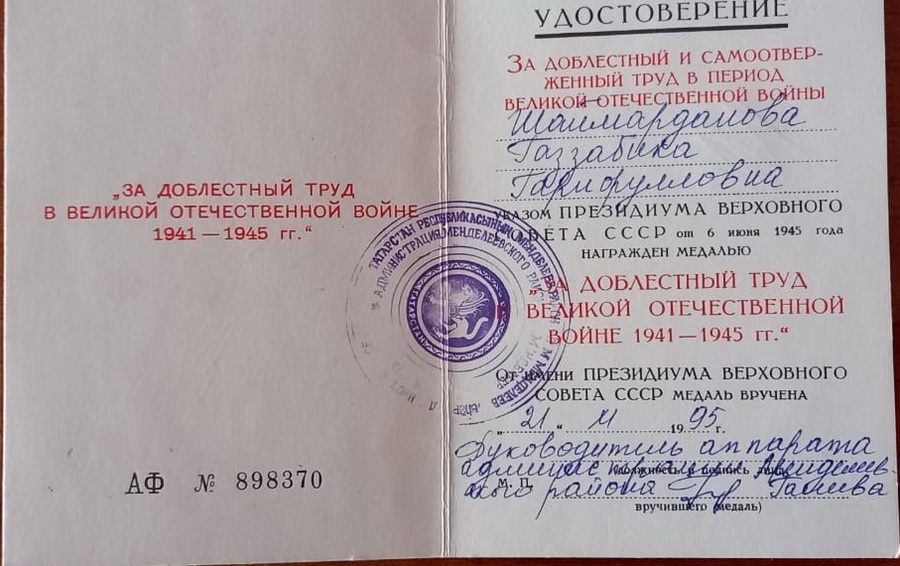 „ЗА ДОБЛЕСТНЫЙ ТРУД
В ВЕЛИКОЙ ОТЕЧЕСТВЕННОЙ ВОЙНЕ
1941 — 1945 гг.“
АФ № 898370
УДОСТОВЕРЕНИЕ
ЗА ДОБЛЕСТНЫЙ И САМООТВЕР-
ЖЕННЫЙ ТРУД В ПЕРИОД
ВЕЛИКОЙ ОТЕЧЕСТВЕННОЙ ВОЙНЫ
Шаймарданова
Газзабика
Гарифулловна
УКАЗОМ ПРЕЗИДИУМА ВЕРХОВНОГО
СОВЕТА СССР от 6 июня 1945 года
НАГРАЖДЕН МЕДАЛЬЮ
„ЗА ДОБЛЕСТНЫЙ ТРУД
В ВЕЛИКОЙ ОТЕЧЕСТВЕННОЙ
ВОЙНЕ 1941—1945 гг.“
От имени ПРЕЗИДИУМА ВЕРХОВНОГО
СОВЕТА СССР МЕДАЛЬ ВРУЧЕНА
„21“ 1995 г.
Руководитель аппарата
(должность и подпись лица,
М. П. района
вручившего медаль)
ТАТАРСТАН РЕСПУБЛИКАСЫНЫҢ
АДМИНИСТРАЦИЯ МЕНДЕЛЕЕВСКОГО
ТАТАРСТАН